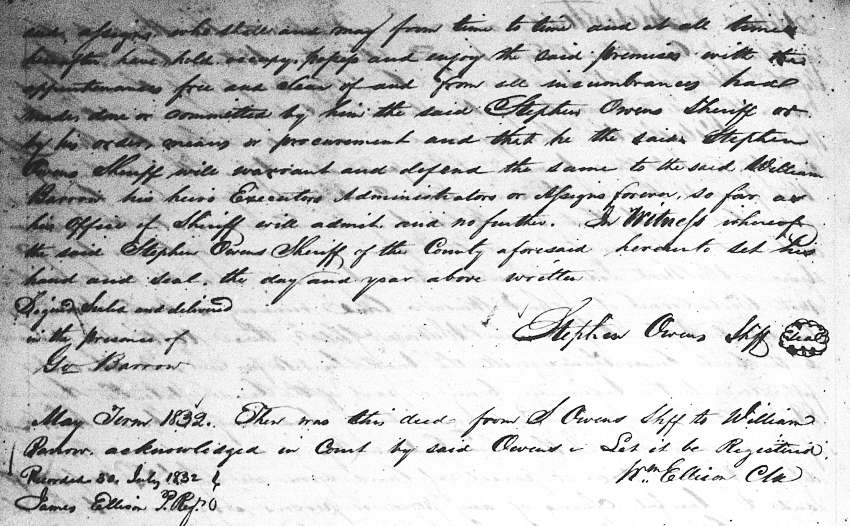 and, assigns, who shall and may from time to time and at all times
hereafter have, hold, occupy, possess and enjoy the said premises with the
appurtenances free and clear of and from all incumbrances had
made, done or committed by him the said Stephen Owens Sheriff or
by his order, means or procurement and that he the said Stephen
Owens Sheriff will warrant and defend the same to the said William
Barrow his heirs Executors Administrators or Assigns forever, so far as
his Office of Sheriff will admit and no further. In Witness whereof
the said Stephen Owens Sheriff of the County aforesaid hereunto set his
hand and seal, the day and year above written
Signed Seald and delivered
in the presence of
Stephen Owens Shff Seal
Go Barrow
May Term 1832. Then was this deed from S Owens Shff to William
Barrow, acknowledged in Court by said Owens & Let it be Registered.
Recorded 30. July 1832
Wm Ellison Clk
James Ellison P. Regr